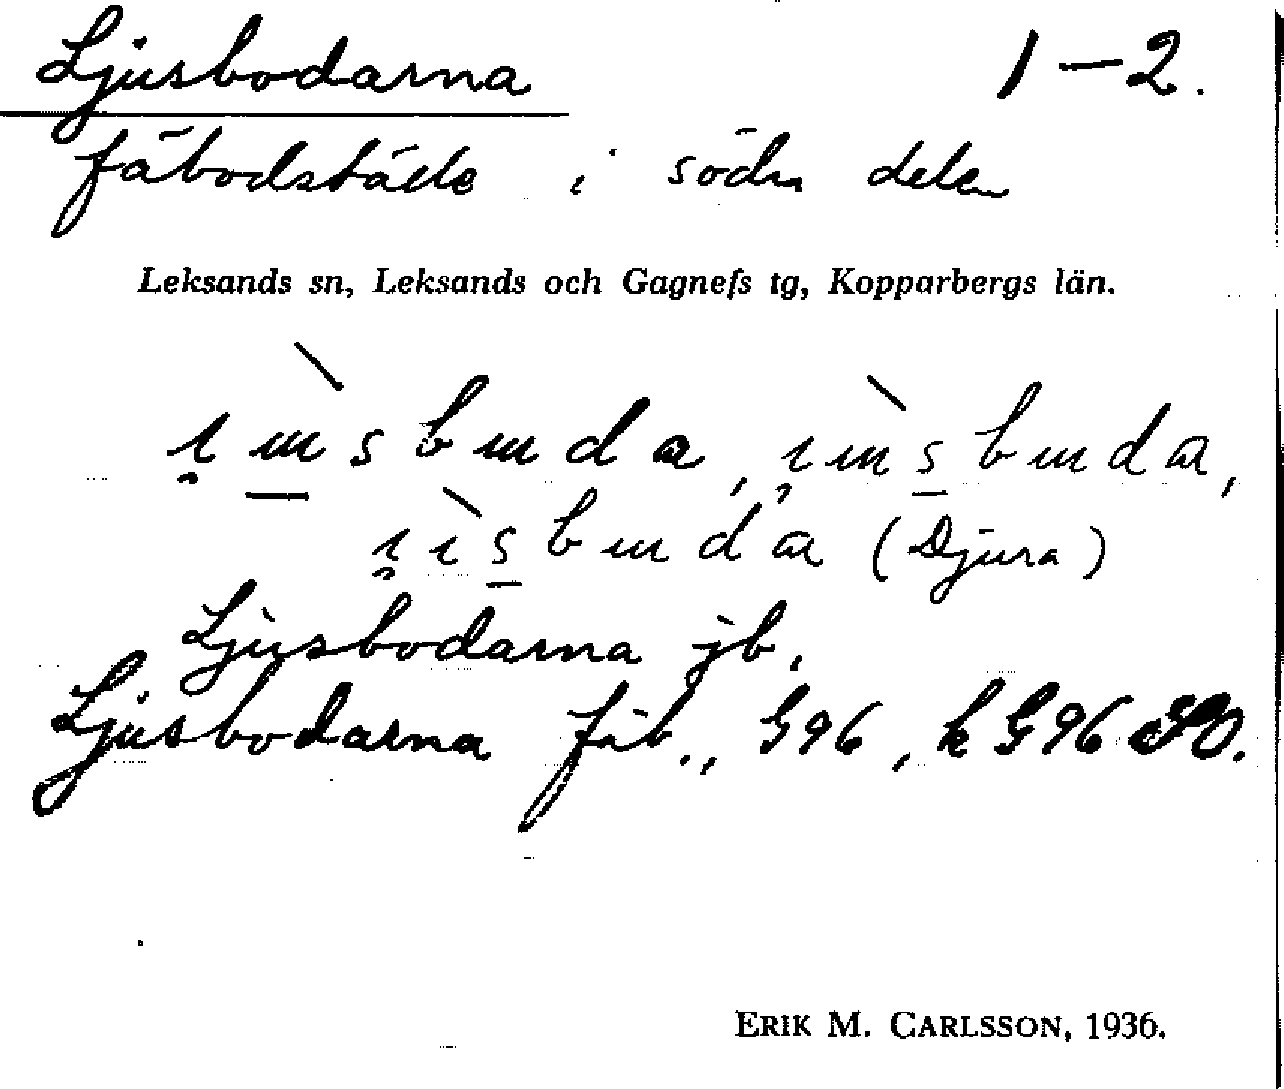 Ljusbodarna 1-2.
fäbodställe i södra delen
Leksands sn, Leksands och Gagnefs tg, Kopparbergs län.
(Djura)
Ljusbodarna jb.
Ljusbodarna fäb., G96, k G96 SO.
ERIK M. CARLSSON, 1936.